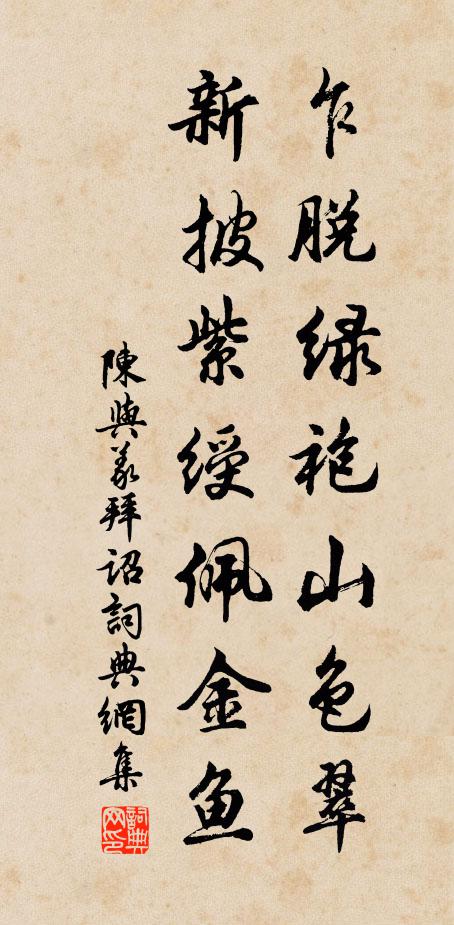 乍脱绿袍山色翠
新披紫绶佩金鱼
陳與义拜诏詞典網集
詞典网印